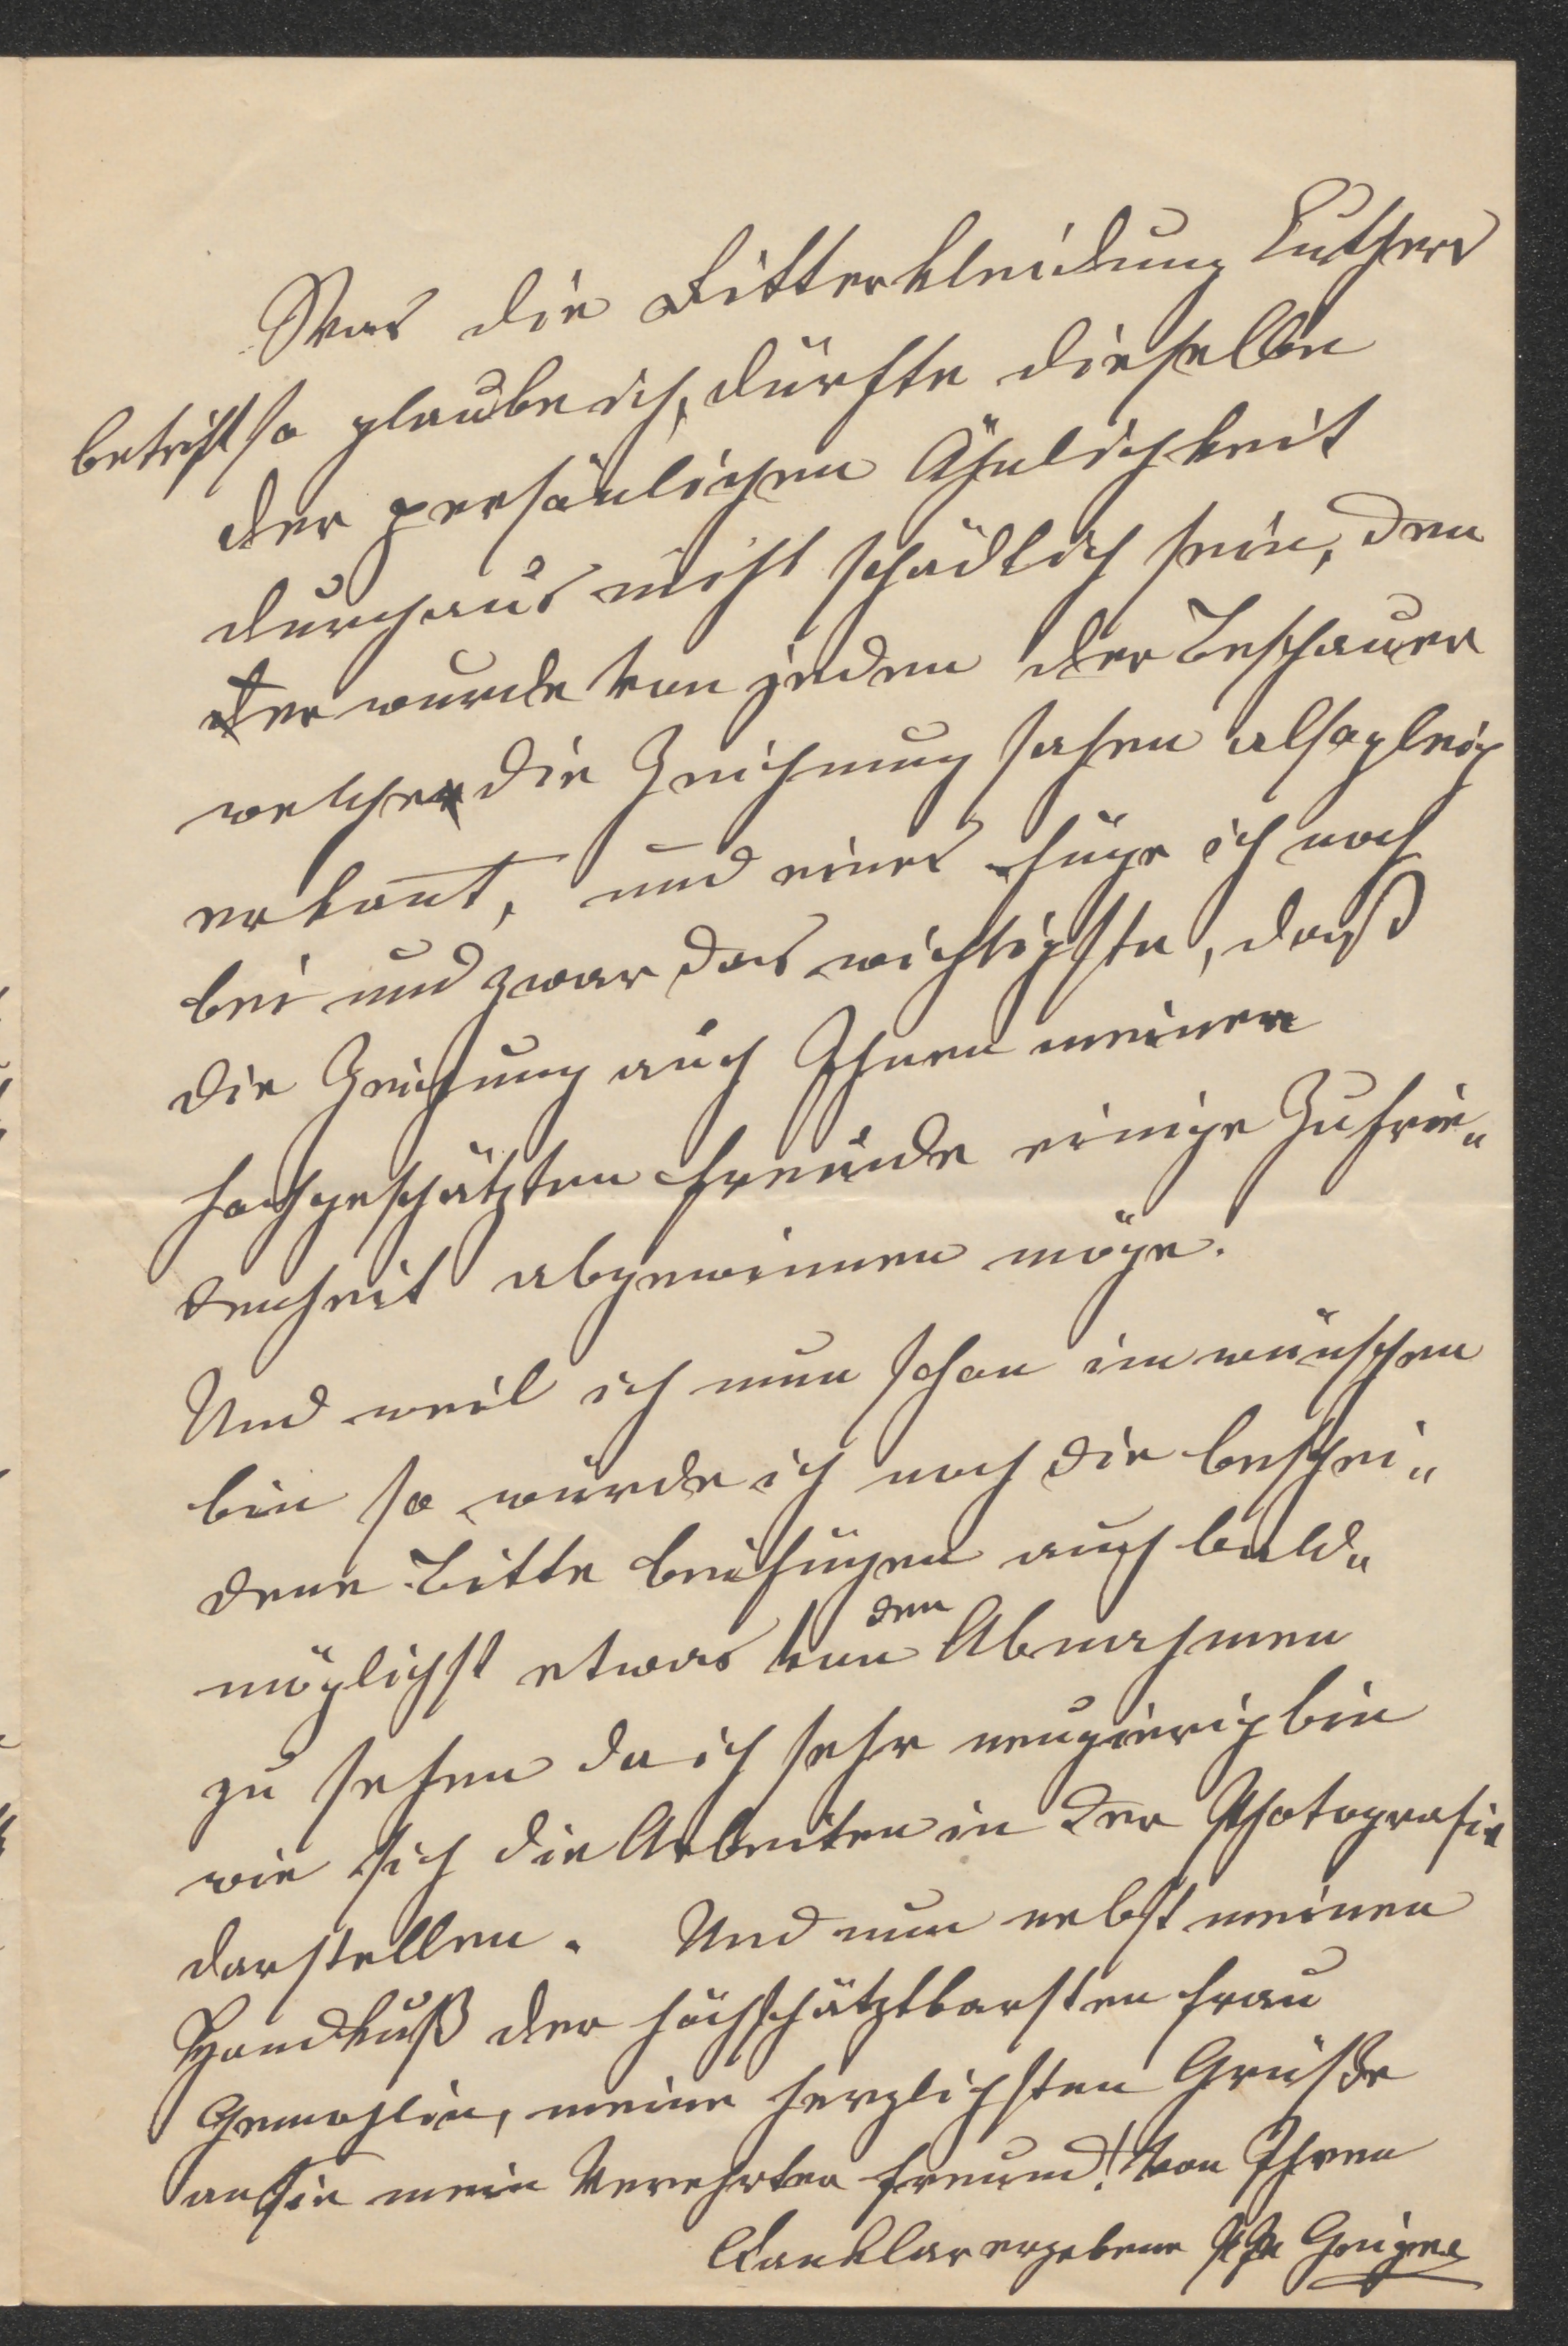 Was die Ritterkleidung Luthers
betrift so glaube ich, dürfte dieselbe
der persönlichen Ähnlichkeit
durchaus nicht schädlich sein, den
der wurde von jedem der Beschauer
welche die Zeichnung sahen alsogleich
erkant, und eines füge ich noch
bei und zwar das wichtigste, daß
die Zeichnung auch Ihnen meinen
hochgeschätzten Freunde einige Zufrie„
denheit abgewinnen möge.
Und weil ich nun schon im wünschen
bin so würde ich noch die beschei„
dene Bitte beifügen auch bald„
möglichst etwas von den Abnahmen
zu sehen da ich sehr neugierig bin
wie sich die Arbeiten in der Photografie
darstellen. Und nun nebst meinen
Handkuß der hochschätzbarsten Frau
Gemahlin, meine herzlichsten Grüße
an Sie mein Verehrter Freund! Von Ihren
ergebene Geiger